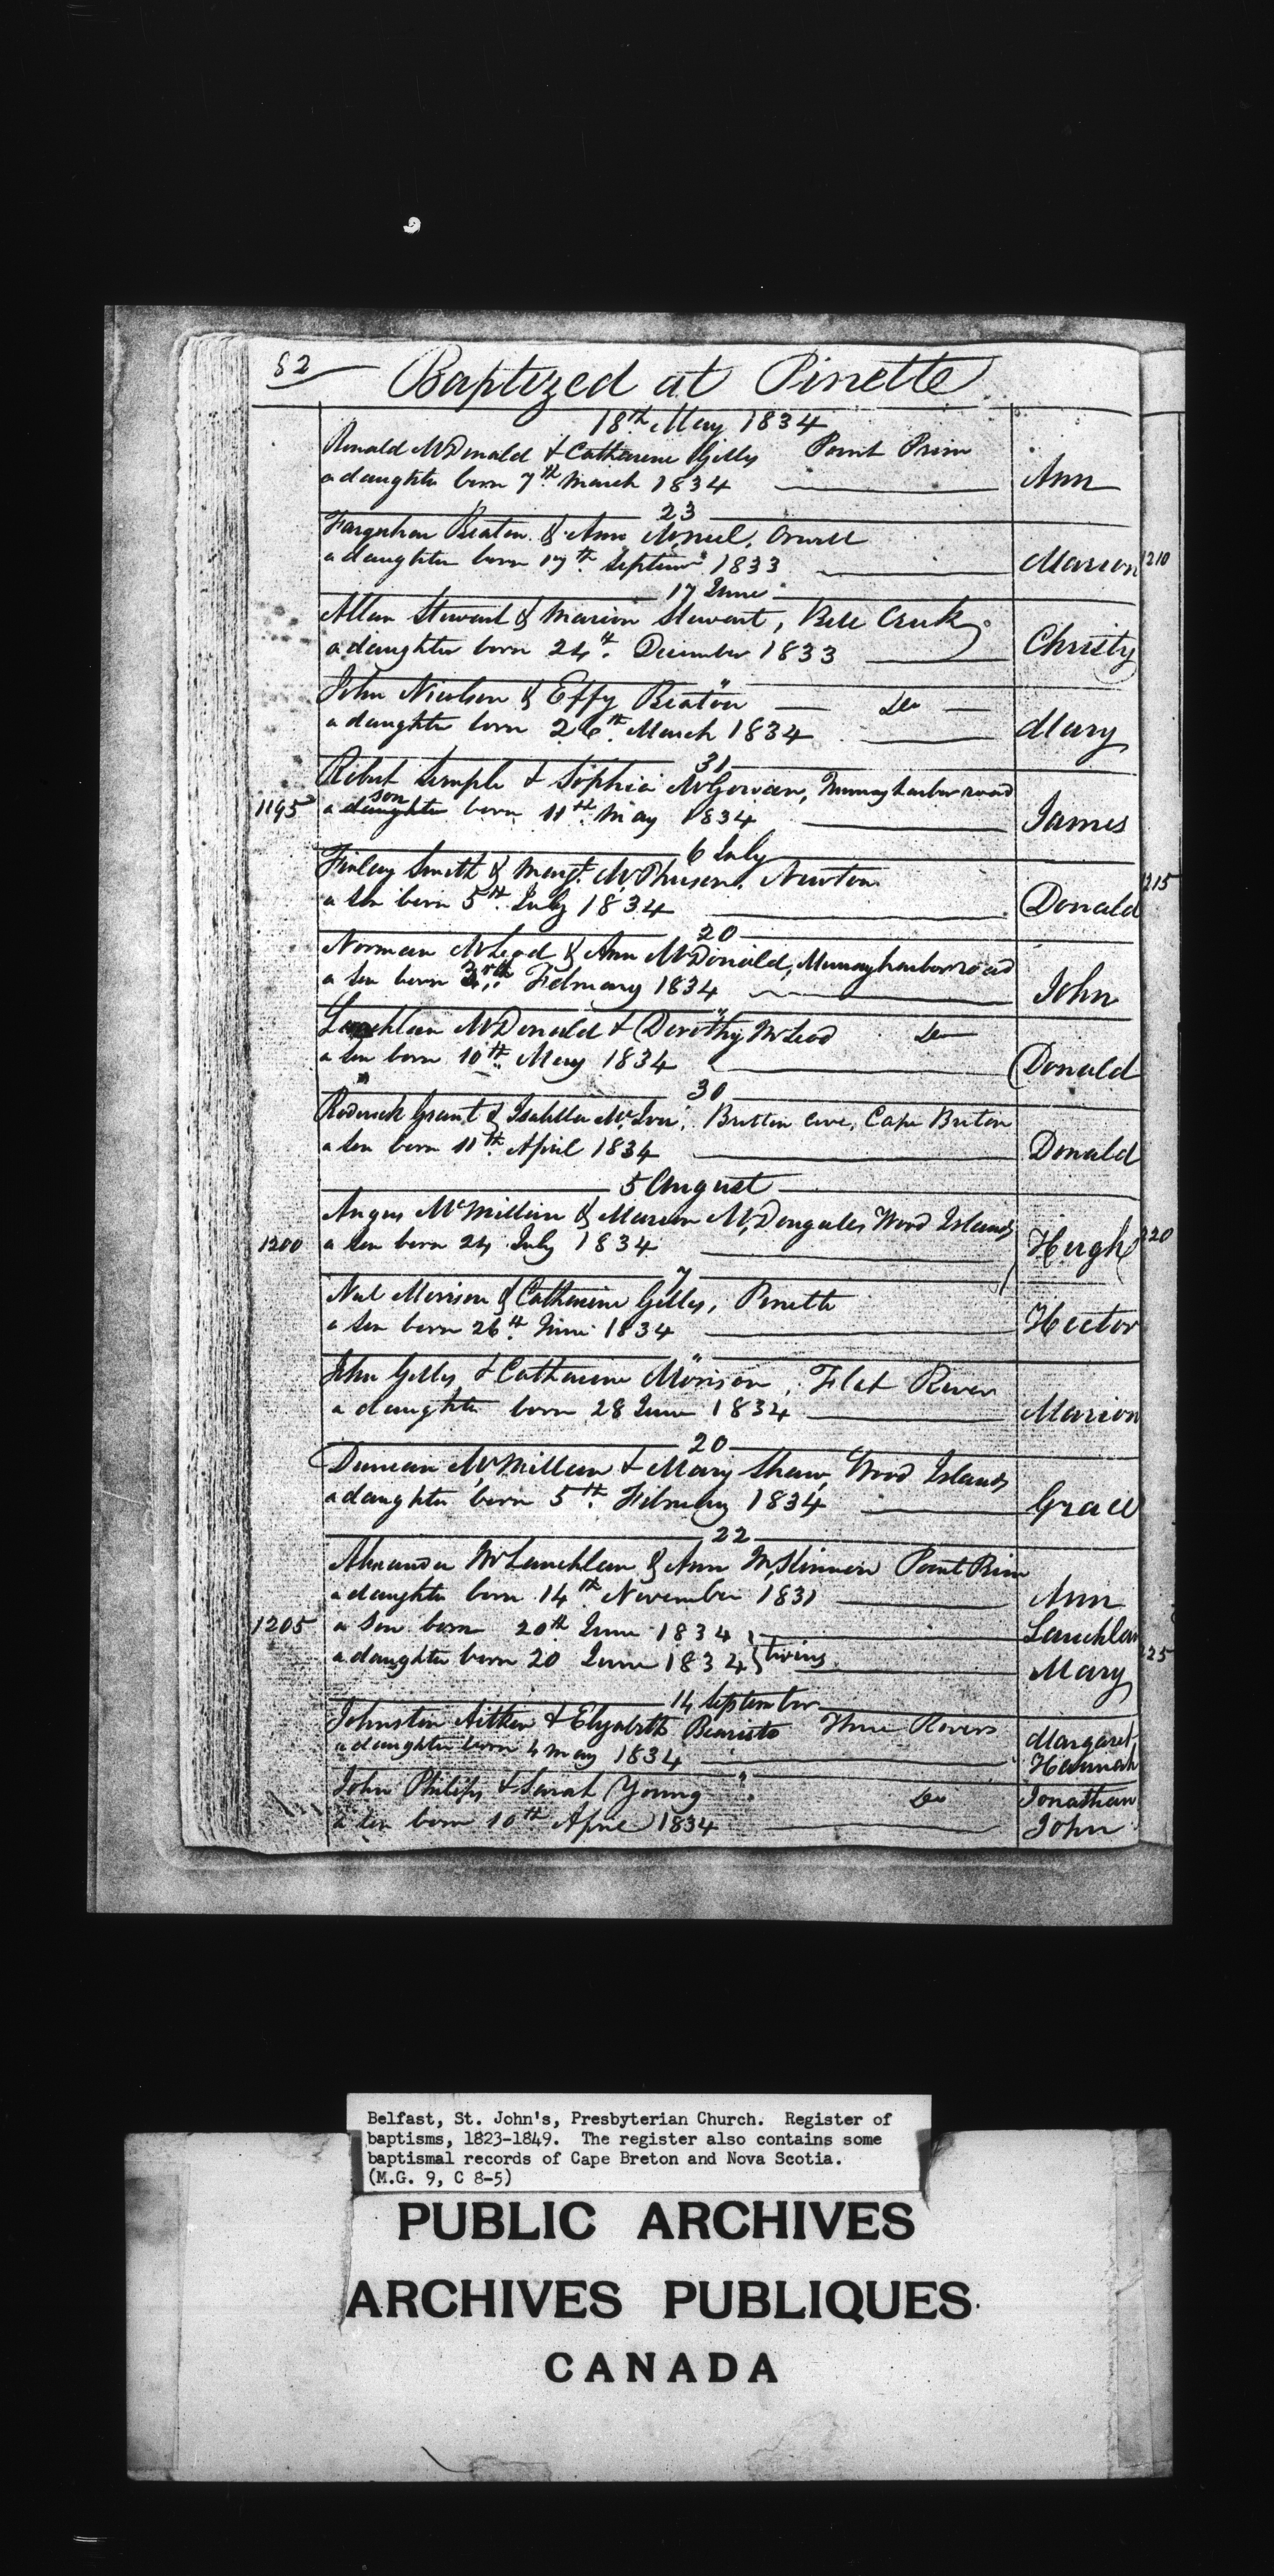 82
Baptized at Pinette
18th May 1834
Ronald McDonald & Catharine Gillys Point Prim
a daughter born 7th March 1834 Ann
23
Farquhar Beaton & Ann McNeil, Orwell
a daughter born 17th Septemr 1833 Marion 1210
17 June
Allan Stewart & Marion Stewart, Bell Creek
a daughter born 24th December 1833 Christy
"
John Nicolson & Effy Beaton Do
a daughter born 26th March 1834 Mary
31
Robert Semple & Sophia McGowan, Murray harbor road
1195 a daughter son born 11th May 1834 James
6 July
Finlay Smith & Margt. McPherson, Newton
a son born 5th July 1834 Donald 1215
20
Norman McLeod & Ann McDonald, Murray harbor road
a son born February 1834 John
"
Lauchlan McDonald & Dorothy McLeod Do
a son born 10th May 1834 Donald
30
Roderick Grant & Isabella McIver, Britten Cove, Cape Breton
a son born 11th April 1834 Donald
5 August
Angus McMillan & Marion McDougale, Wood Islands
1200 a son born 24 July 1834 Hugh 1220
7
Neil Morison & Catharine Gillys, Pinette
a son born 26th June 1834 Hector
"
John Gillys & Catharine Morison, Flat River
a daughter born 28 June 1834 Marion
20
Duncan McMillan & Mary Shaw, Wood Islands
a daughter born 5th February 1834 Grace
22
Alexander McLauchlan & Ann McKinnon Point Prim
a daughter born 14th November 1831 Ann
1205 a son born 20th June 1834 Lauchlan
a daughter born 20 June 1834 } twins Mary 1225
14 September
Johnston Aitken & Elizabeth Bearisto Three Rivers Margaret,
a daughter born 4 May 1834 Hannah
"
John Philips & Sarah Young Do Jonathan
a son born 10th April 1834 John
Belfast, St. John's, Presbyterian Church. Register of
baptisms, 1823-1849. The register also contains some
baptismal records of Cape Breton and Nova Scotia.
(M.G. 9, C 8-5)
PUBLIC ARCHIVES
ARCHIVES PUBLIQUES
CANADA